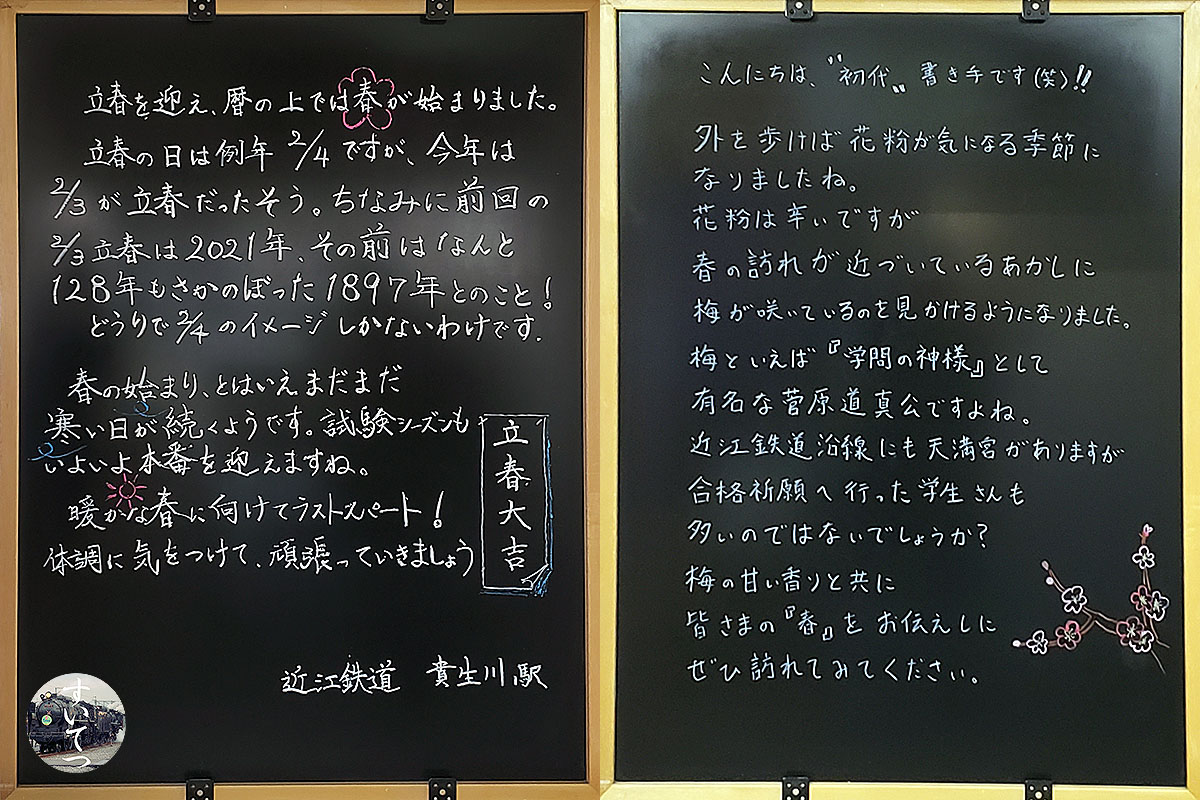 立春を迎え、暦の上では春が始まりました。
立春の日は例年 2/4 ですが、今年は
2/3 が 立春だったそう。ちなみに前回の
2/3 立春は 2021年、その前は なんと
128年もさかのぼった 1897年 とのこと!
どうりで 2/4 のイメージ しかないわけです.
春の始まり、とはいえ まだまだ
寒い日が続くようです。試験シーズンも
いよいよ本番を迎えますね。
暖かな春に向けてラストスパート!
体調に気をつけて、頑張っていきましょう
立春大吉
近江鉄道 貴生川駅
すいてつ
こんにちは、"初代" 書き手です(笑)!!
外を歩けば 花粉が気になる季節に
なりましたね。
花粉は辛いですが
春の訪れが近づいているあかしに
梅が咲いているのを見かけるようになりました。
梅といえば『学問の神様』として
有名な菅原道真公ですよね。
近江鉄道沿線にも天満宮がありますが
合格祈願へ行った学生さんも
多いのではないでしょうか?
梅の甘い香りと共に
皆さまの『春』を お伝えしに
ぜひ訪れてみてください。